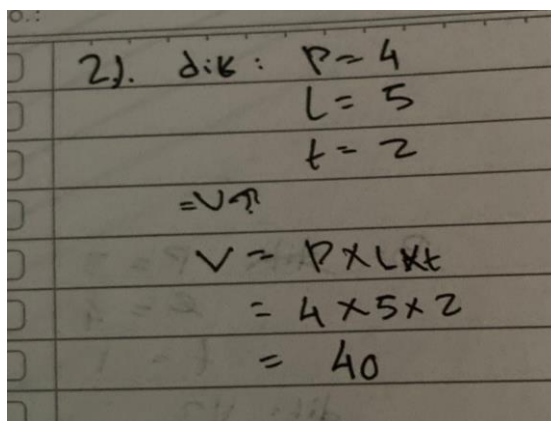 o.:
2). dik: P = 4
L = 5
t = 2
= V?
V = P x L x t
= 4 x 5 x 2
= 40